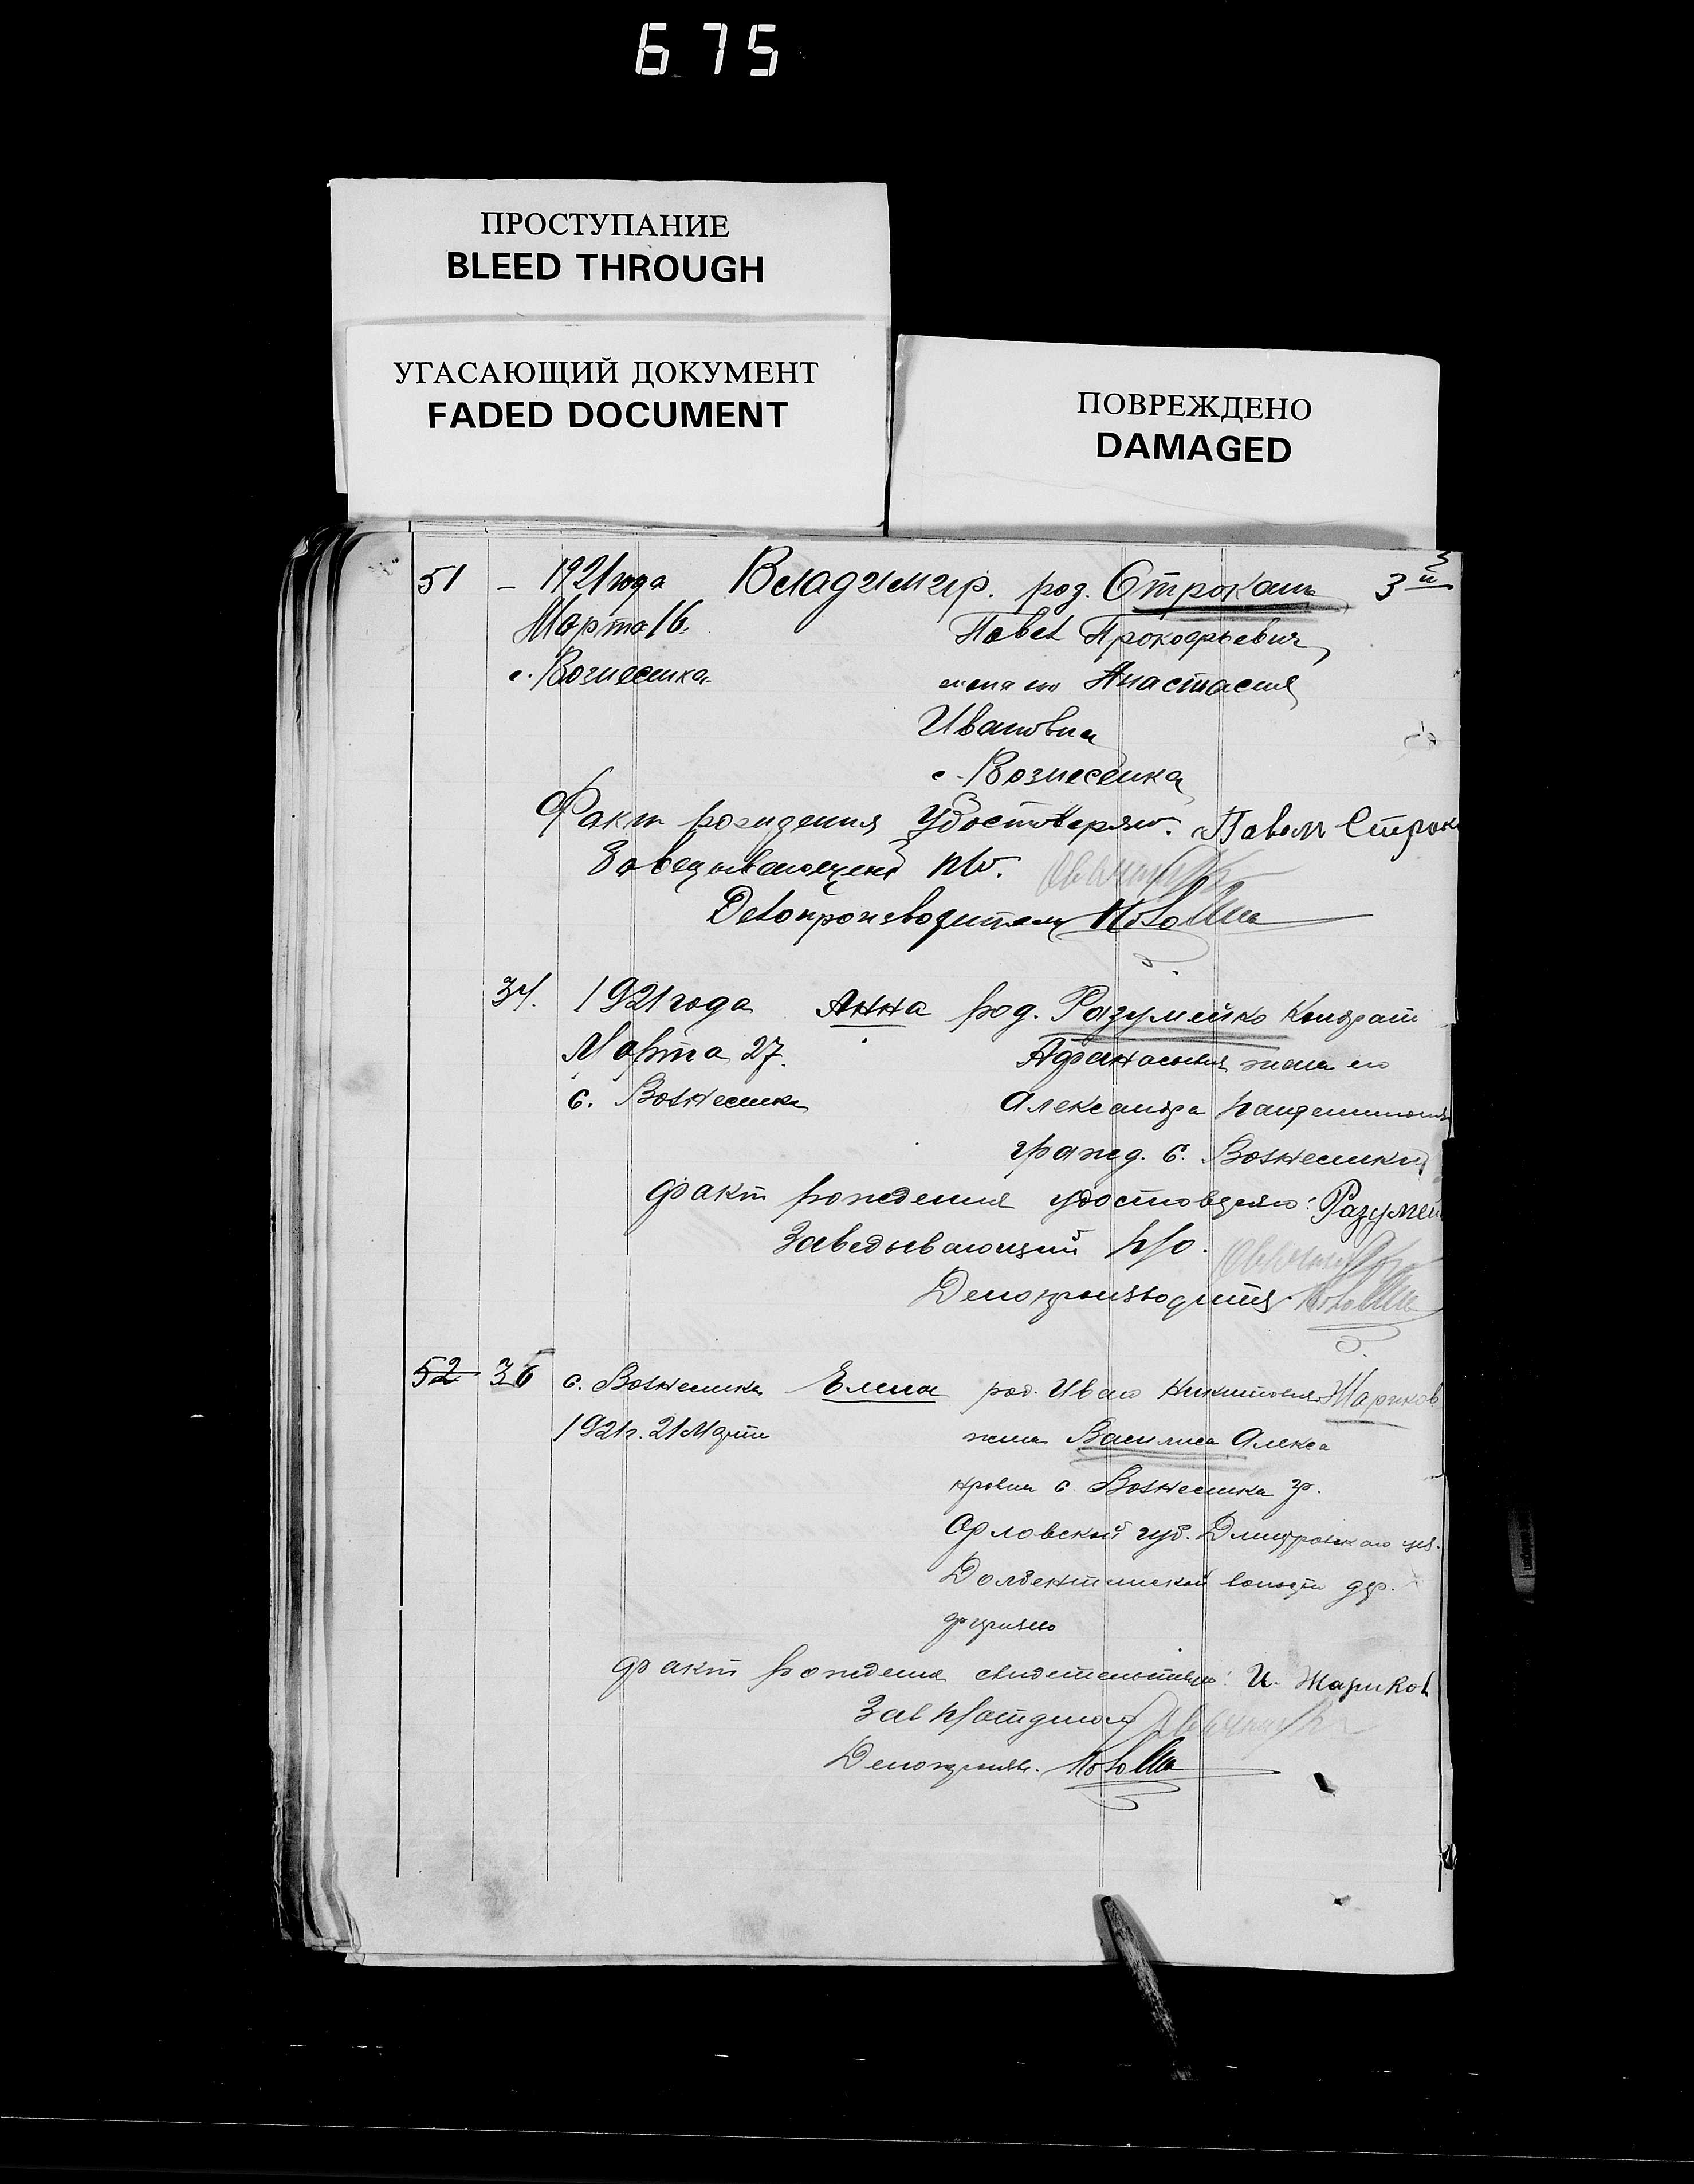 675
ПРОСТУПАНИЕ
BLEED THROUGH
УГАСАЮЩИЙ ДОКУМЕНТ
FADED DOCUMENT
ПОВРЕЖДЕНО
DAMAGED
51 – 1921 года Владимир. род. Строкань 3й
Марта 16. Павел Прокофьевич
с. Вознесенка жена его Анастасия
Ивановна
с. Вознесенка
Факт рождения удостоверяю. Павел Строк
Заведывающий п/о.
Делопроизводитель
34. 1921 года Анна род. Разумейко Кондрат
Марта 27. Афанасьевич жена его
с. Вознесенка Александра
гражд. с. Вознесенки
факт рождения удостоверяю: Разумей
Заведывающий п/о.
Делопроизводитель
52 36 с. Вознесенка Елена род. Иван Никитович Жариков
1921 г. 21 Марта жена Василиса Алекса
ндровна с. Вознесенка гр.
Орловской губ. Дмитровского уез.
волости дер.
факт рождения свидетельствую: И. Жариков
Зав п/отделом
Делопроизв.